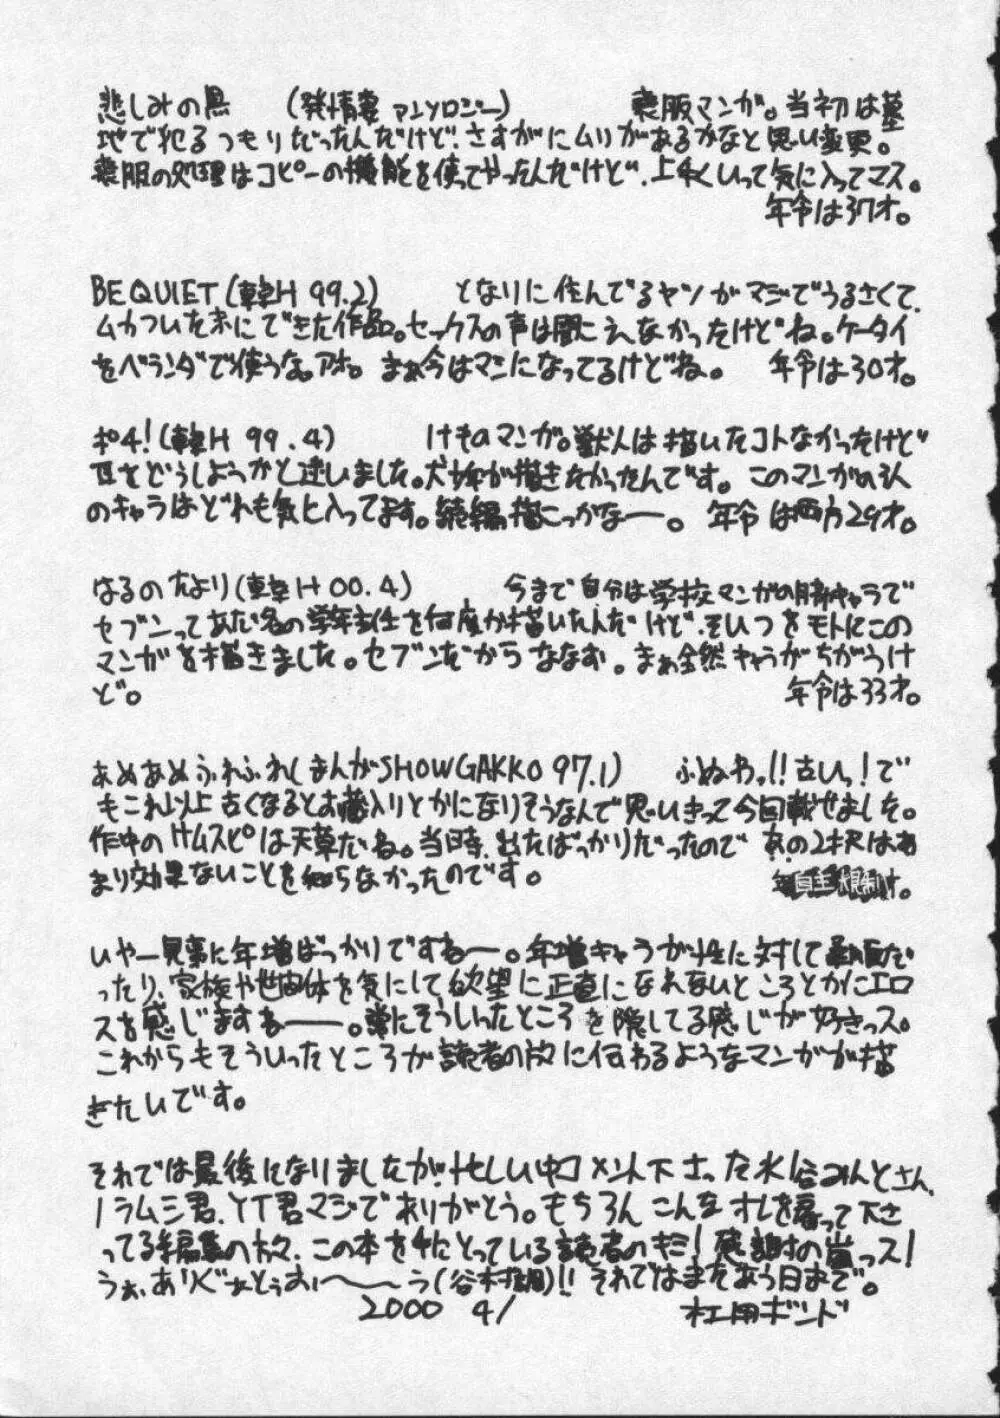 悲しみの黒 (発情妻アンソロジー) 喪服マンガ。当初は墓
地で犯るつもりだったんだけど、さすがにムリがあるかなと思い変更。
喪服の処理はコピーの機能を使ってやったんだけど、上手くいって気に入ってマス。
年令は37才。
BE QUIET (韓H 99.2) となりに住んでるヤツがマジでうるさくて、
ムカついた末にできた作品。セックスの声は聞こえなかったけどね。ケータイ
をベランダで使うな。アホ。まぁ今はマシになってるけどね。 年令は30才。
ポチ! (韓H 99.4) けものマンガ。獣人は描いたコトなかったけど
耳をどうしようかと迷いました。犬が描きたかったんです。このマンガの3人
のキャラはどれも気に入ってます。続編描こっかなー。 年令は両方29才。
はるのたより (韓H 00.4) 今まで自分は学校マンガの脇キャラで
セブンってあだ名の学年主任を何度か描いたんだけど、そいつをモトにこの
マンガを描きました。セブンだからななお。まぁ全然キャラがちがうけ
ど。 年令は33才。
あめあめふれふれ (まんがSHOWGAKKO 97.1) ふぬわっ!!古いっ!で
もこれ以上古くなるとお蔵入りとかになりそうなんで思いきって今回載せました。
作中のサムスピは天草だね。当時、出たばっかりだったので あの2択はあ
まり効果ないことを知らなかったのです。
自主規制 才。
いやー見事に年増ばっかりですねー。年増キャラが性に対して
ったり、家族や世間体を気にして欲望に正直になれないところとかにエロ
スを感じますねー。常にそういったところを隠してる感じが好きっス。
これからもそういったところが読者の方に伝わるようなマンガが描
きたいです。
それでは最後になりましたが、忙しい中コメント下さった水谷みんとさん、
ノラムシ君、YT君マジでありがとう。もちろんこんなオレを雇って下さ
ってる編集の方々、この本を手にとっている読者のキミ!感謝の嵐っス!
うぉ、ありぐぁとぅぉぃ〜う(谷村)!!それではまたあう日まで。
2000 4/ 杜用ボンド